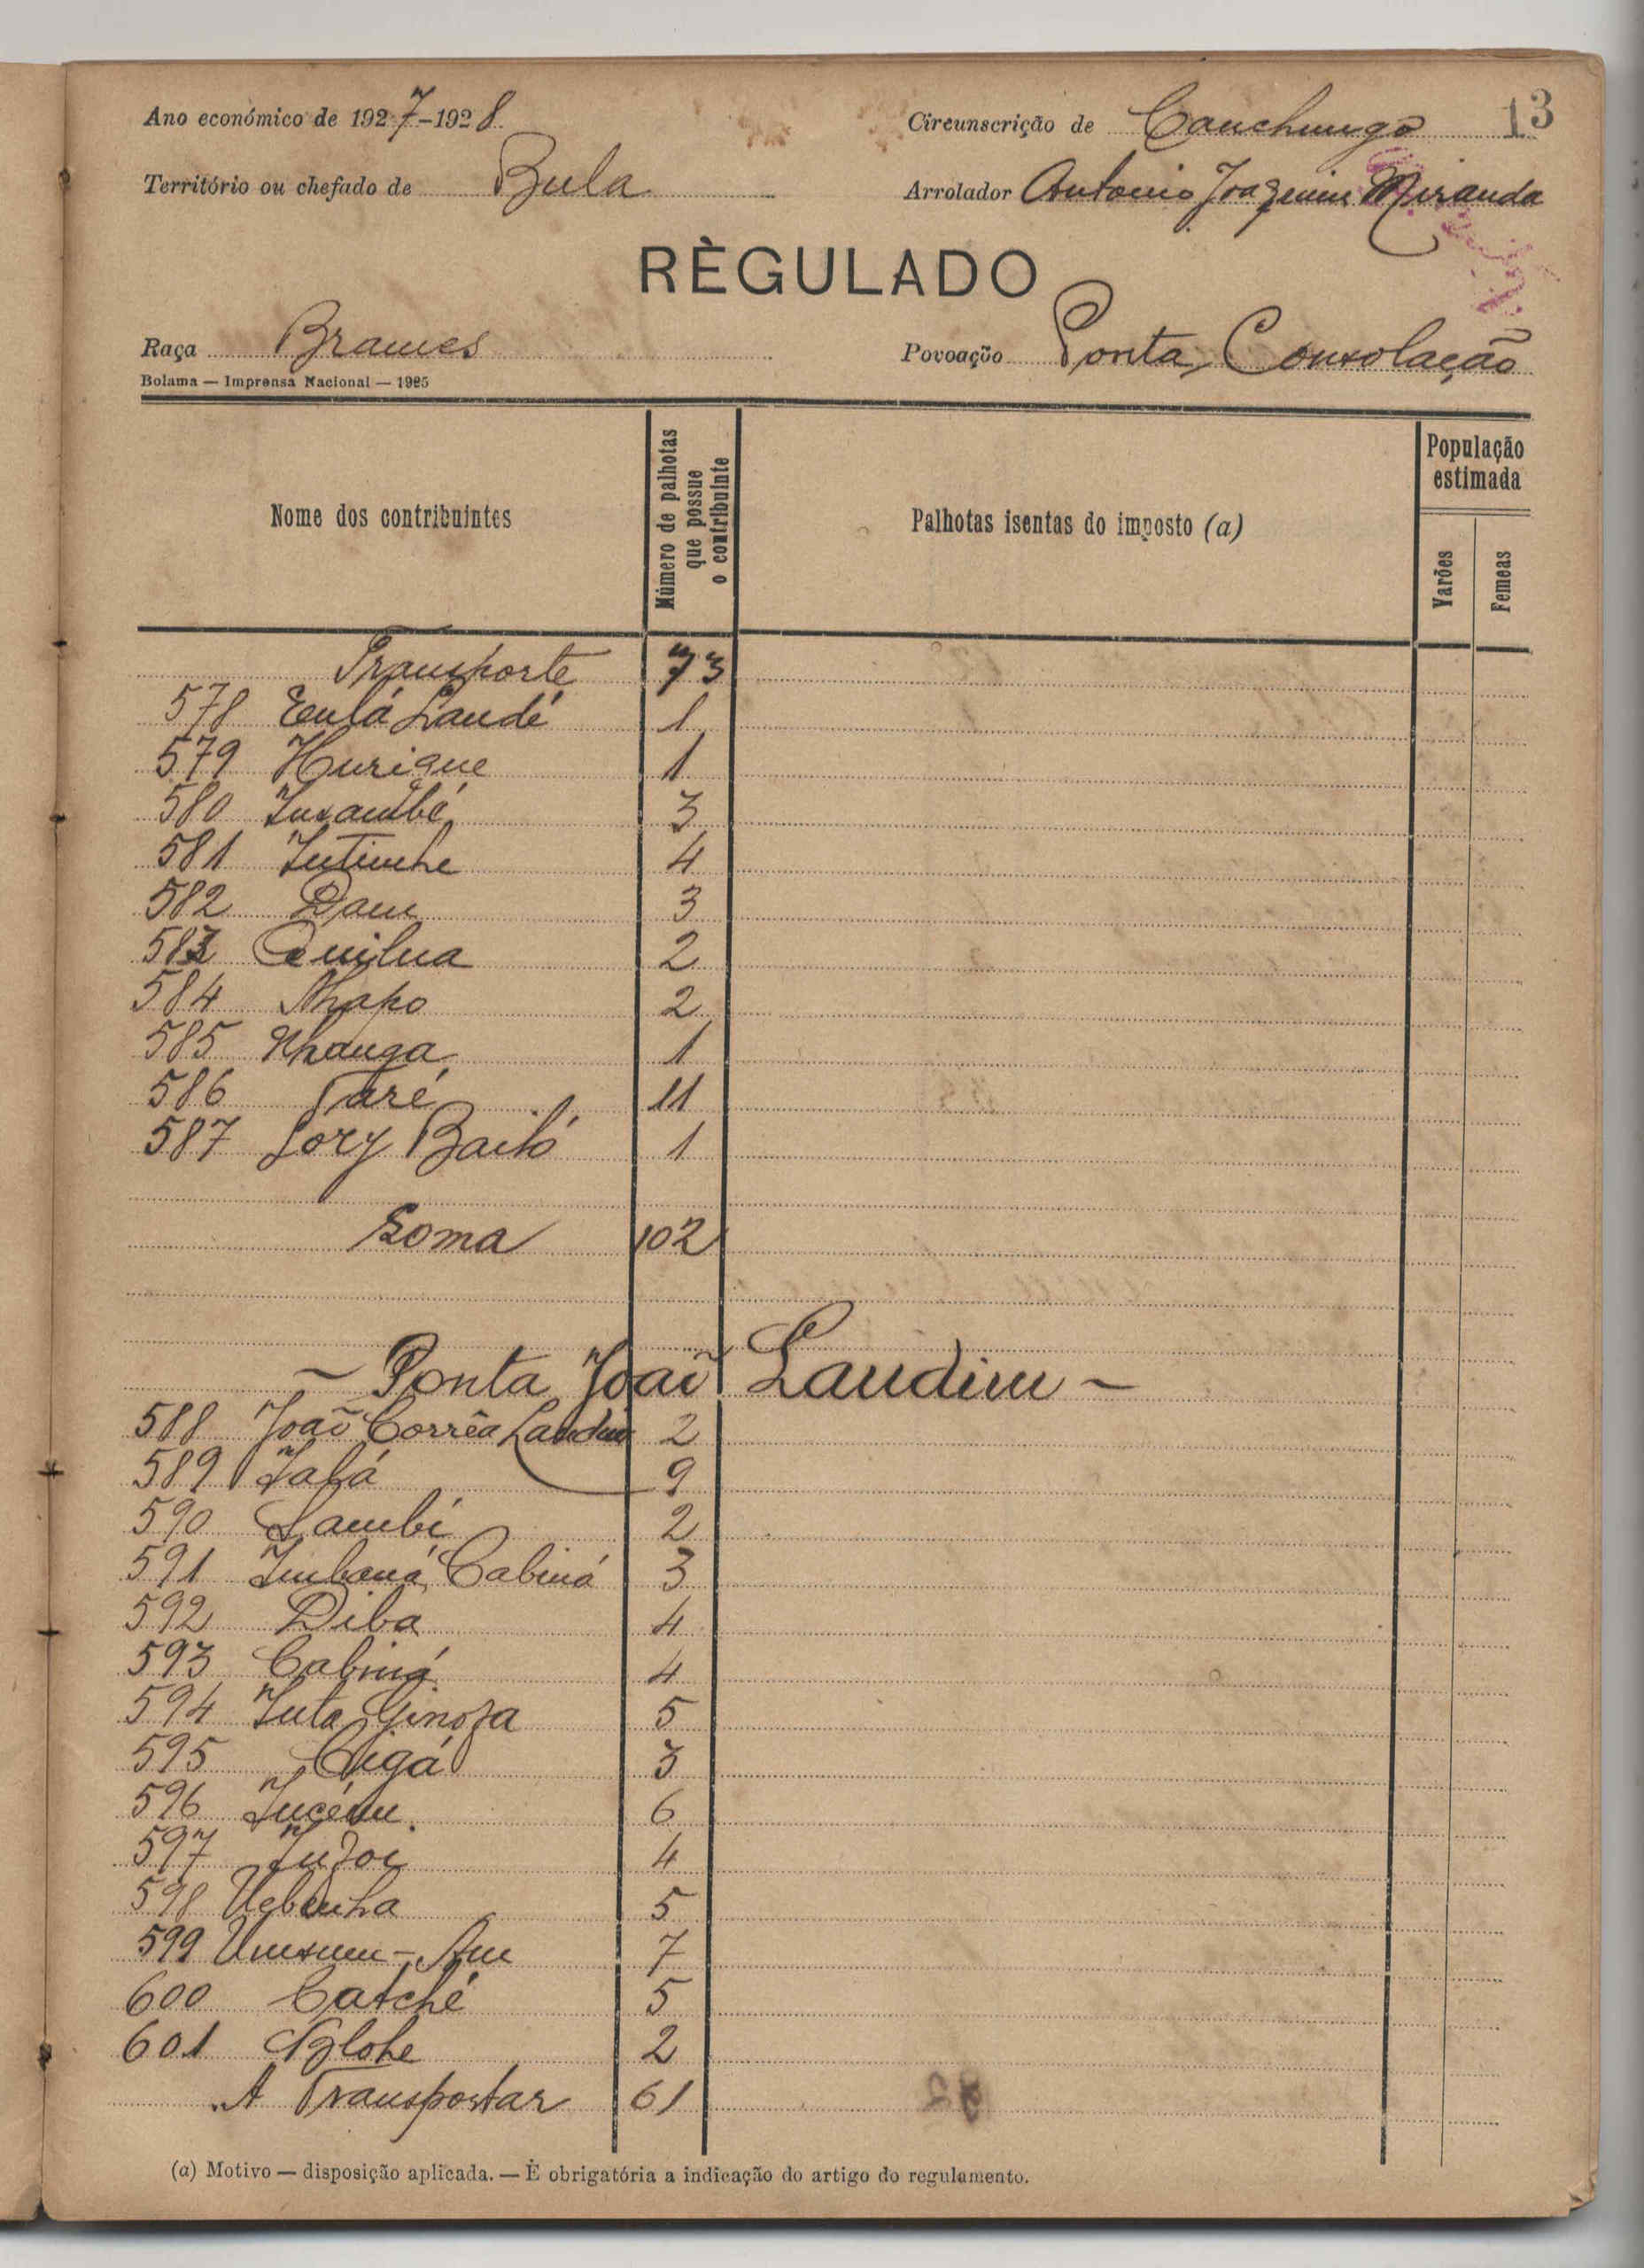 13
Ano económico de 1927-1928
Circunscrição de Canchungo
Território ou chefado de Bula
Arrolador Antonio Joaquim Miranda
RÈGULADO
Raça Brames
Povoação Ponta Consolação
Bolama — Imprensa Nacional — 1925
Nome dos contribuintes
Número de palhotas que possue o contribuinte
Palhotas isentas do imposto (a)
População estimada
Varões
Femeas
Transporte 73
578 Eulá Landé 1
579 Hurique 1
580 3
581 4
582 Dam 3
583 Quilua 2
584 Nhapo 2
585 Nhanga 1
586 Taré 11
587 Lory Bailó 1
Soma 102
- Ponta João Landim -
588 João Corrêa Landim 2
589 9
590 Lambi 2
591 Cabiná 3
592 Diba 4
593 Cabiná 4
594 5
595 Cigá 3
596 6
597 4
598 5
599 7
600 Catché 5
601 2
A Transportar 61
(a) Motivo — disposição aplicada. — È obrigatória a indicação do artigo do regulamento.